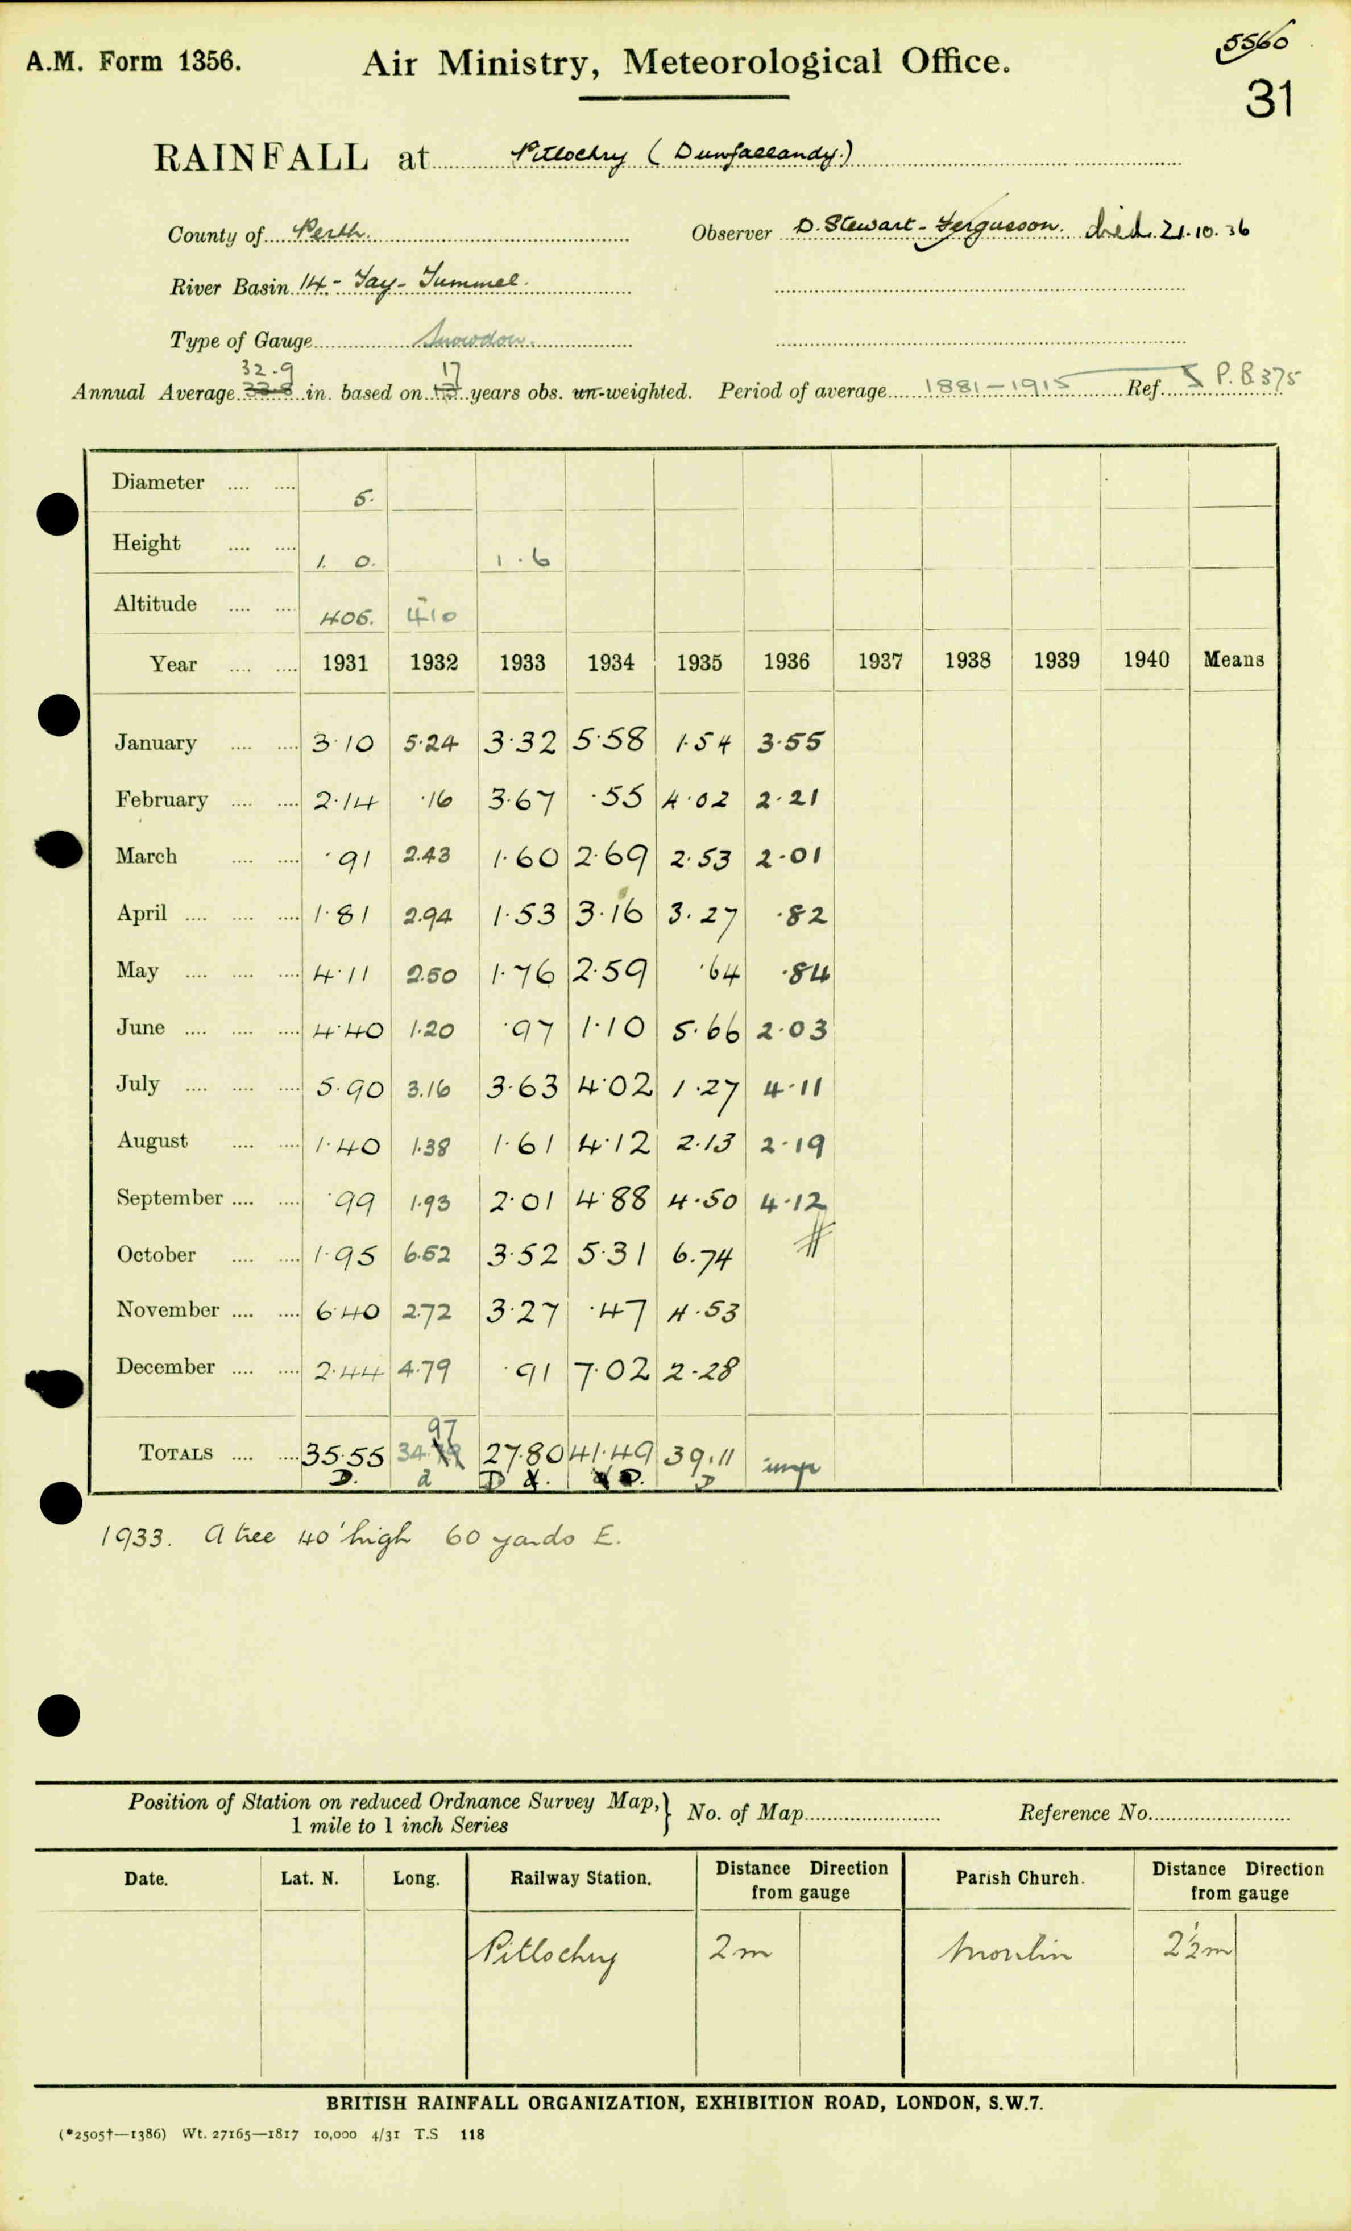 A.M. Form 1356.
Air Ministry, Meteorological Office.
5560
31
RAINFALL at Pitlochry (Dunfallandy.)
County of Perth. Observer D. Stewart-Fergusson. died 21.10.36
River Basin 14 - Tay - Tummel.
Type of Gauge Snowdon.
32.9 17
Annual Average 33.8 in. based on years obs. un-weighted. Period of average 1881-1915 Ref. P.B 375
Diameter .... .... 5.
Height .... .... 1. 0. 1.6
Altitude .... .... 406. 410
Year .... .... 1931 1932 1933 1934 1935 1936 1937 1938 1939 1940 Means
January .... .... 3.10 5.24 3.32 5.58 1.54 3.55
February .... .... 2.14 .16 3.67 .55 4.02 2.21
March .... .... .91 2.43 1.60 2.69 2.53 2.01
April .... .... .... 1.81 2.94 1.53 3.16 3.27 .82
May .... .... .... 4.11 2.50 1.76 2.59 .64 .84
June .... .... .... 4.40 1.20 .97 1.10 5.66 2.03
July .... .... .... 5.90 3.16 3.63 4.02 1.27 4.11
August .... .... 1.40 1.38 1.61 4.12 2.13 2.19
September .... .... .99 1.93 2.01 4.88 4.50 4.12
October .... .... 1.95 6.52 3.52 5.31 6.74
November .... .... 6.40 2.72 3.27 .47 4.53
December .... .... 2.44 4.79 .91 7.02 2.28
97
TOTALS .... .... 35.55 34. 27.80 41.49 39.11
D. d D D. D
1933. A tree 40' high 60 yards E.
Position of Station on reduced Ordnance Survey Map,} No. of Map Reference No.
1 mile to 1 inch Series
Date. Lat. N. Long. Railway Station. Distance Direction from gauge Parish Church. Distance Direction from gauge
Pitlochry 2m Moulin 2½m
BRITISH RAINFALL ORGANIZATION, EXHIBITION ROAD, LONDON, S.W.7.
(*2505†—1386) Wt. 27165—1817 10,000 4/31 T.S 118